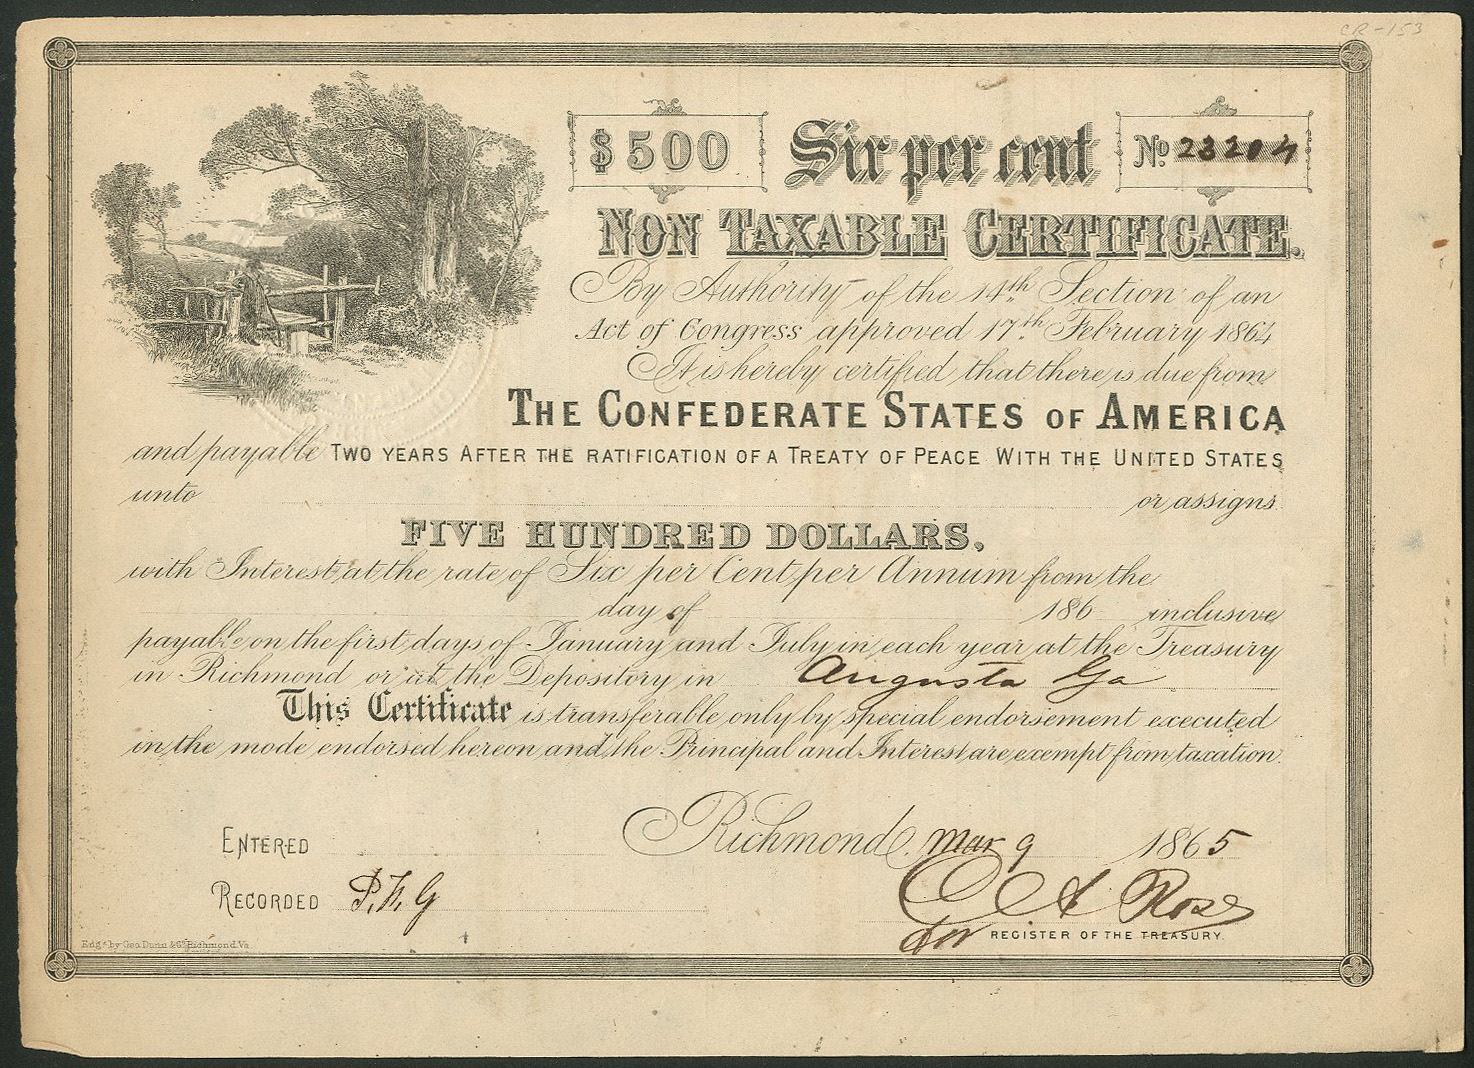 CR-153
$500
Six per cent
No. 23204
NON TAXABLE CERTIFICATE.
By Authority of the 14th. Section of an
Act of Congress approved 17th. February 1864
It is hereby certified that there is due from
THE CONFEDERATE STATES OF AMERICA
and payable TWO YEARS AFTER THE RATIFICATION OF A TREATY OF PEACE WITH THE UNITED STATES
unto or assigns
FIVE HUNDRED DOLLARS,
with Interest at the rate of Six per Cent per Annum from the
day of 186 inclusive
payable on the first days of January and July in each year at the Treasury
in Richmond or at the Depository in Augusta Ga
This Certificate is transferable only by special endorsement executed
in the mode endorsed hereon and the Principal and Interest are exempt from taxation.
Richmond, Mar 9 1865
ENTERED
RECORDED
A Rose
for REGISTER OF THE TREASURY.
Engd. by Geo Dunn & Co. Richmond. Va